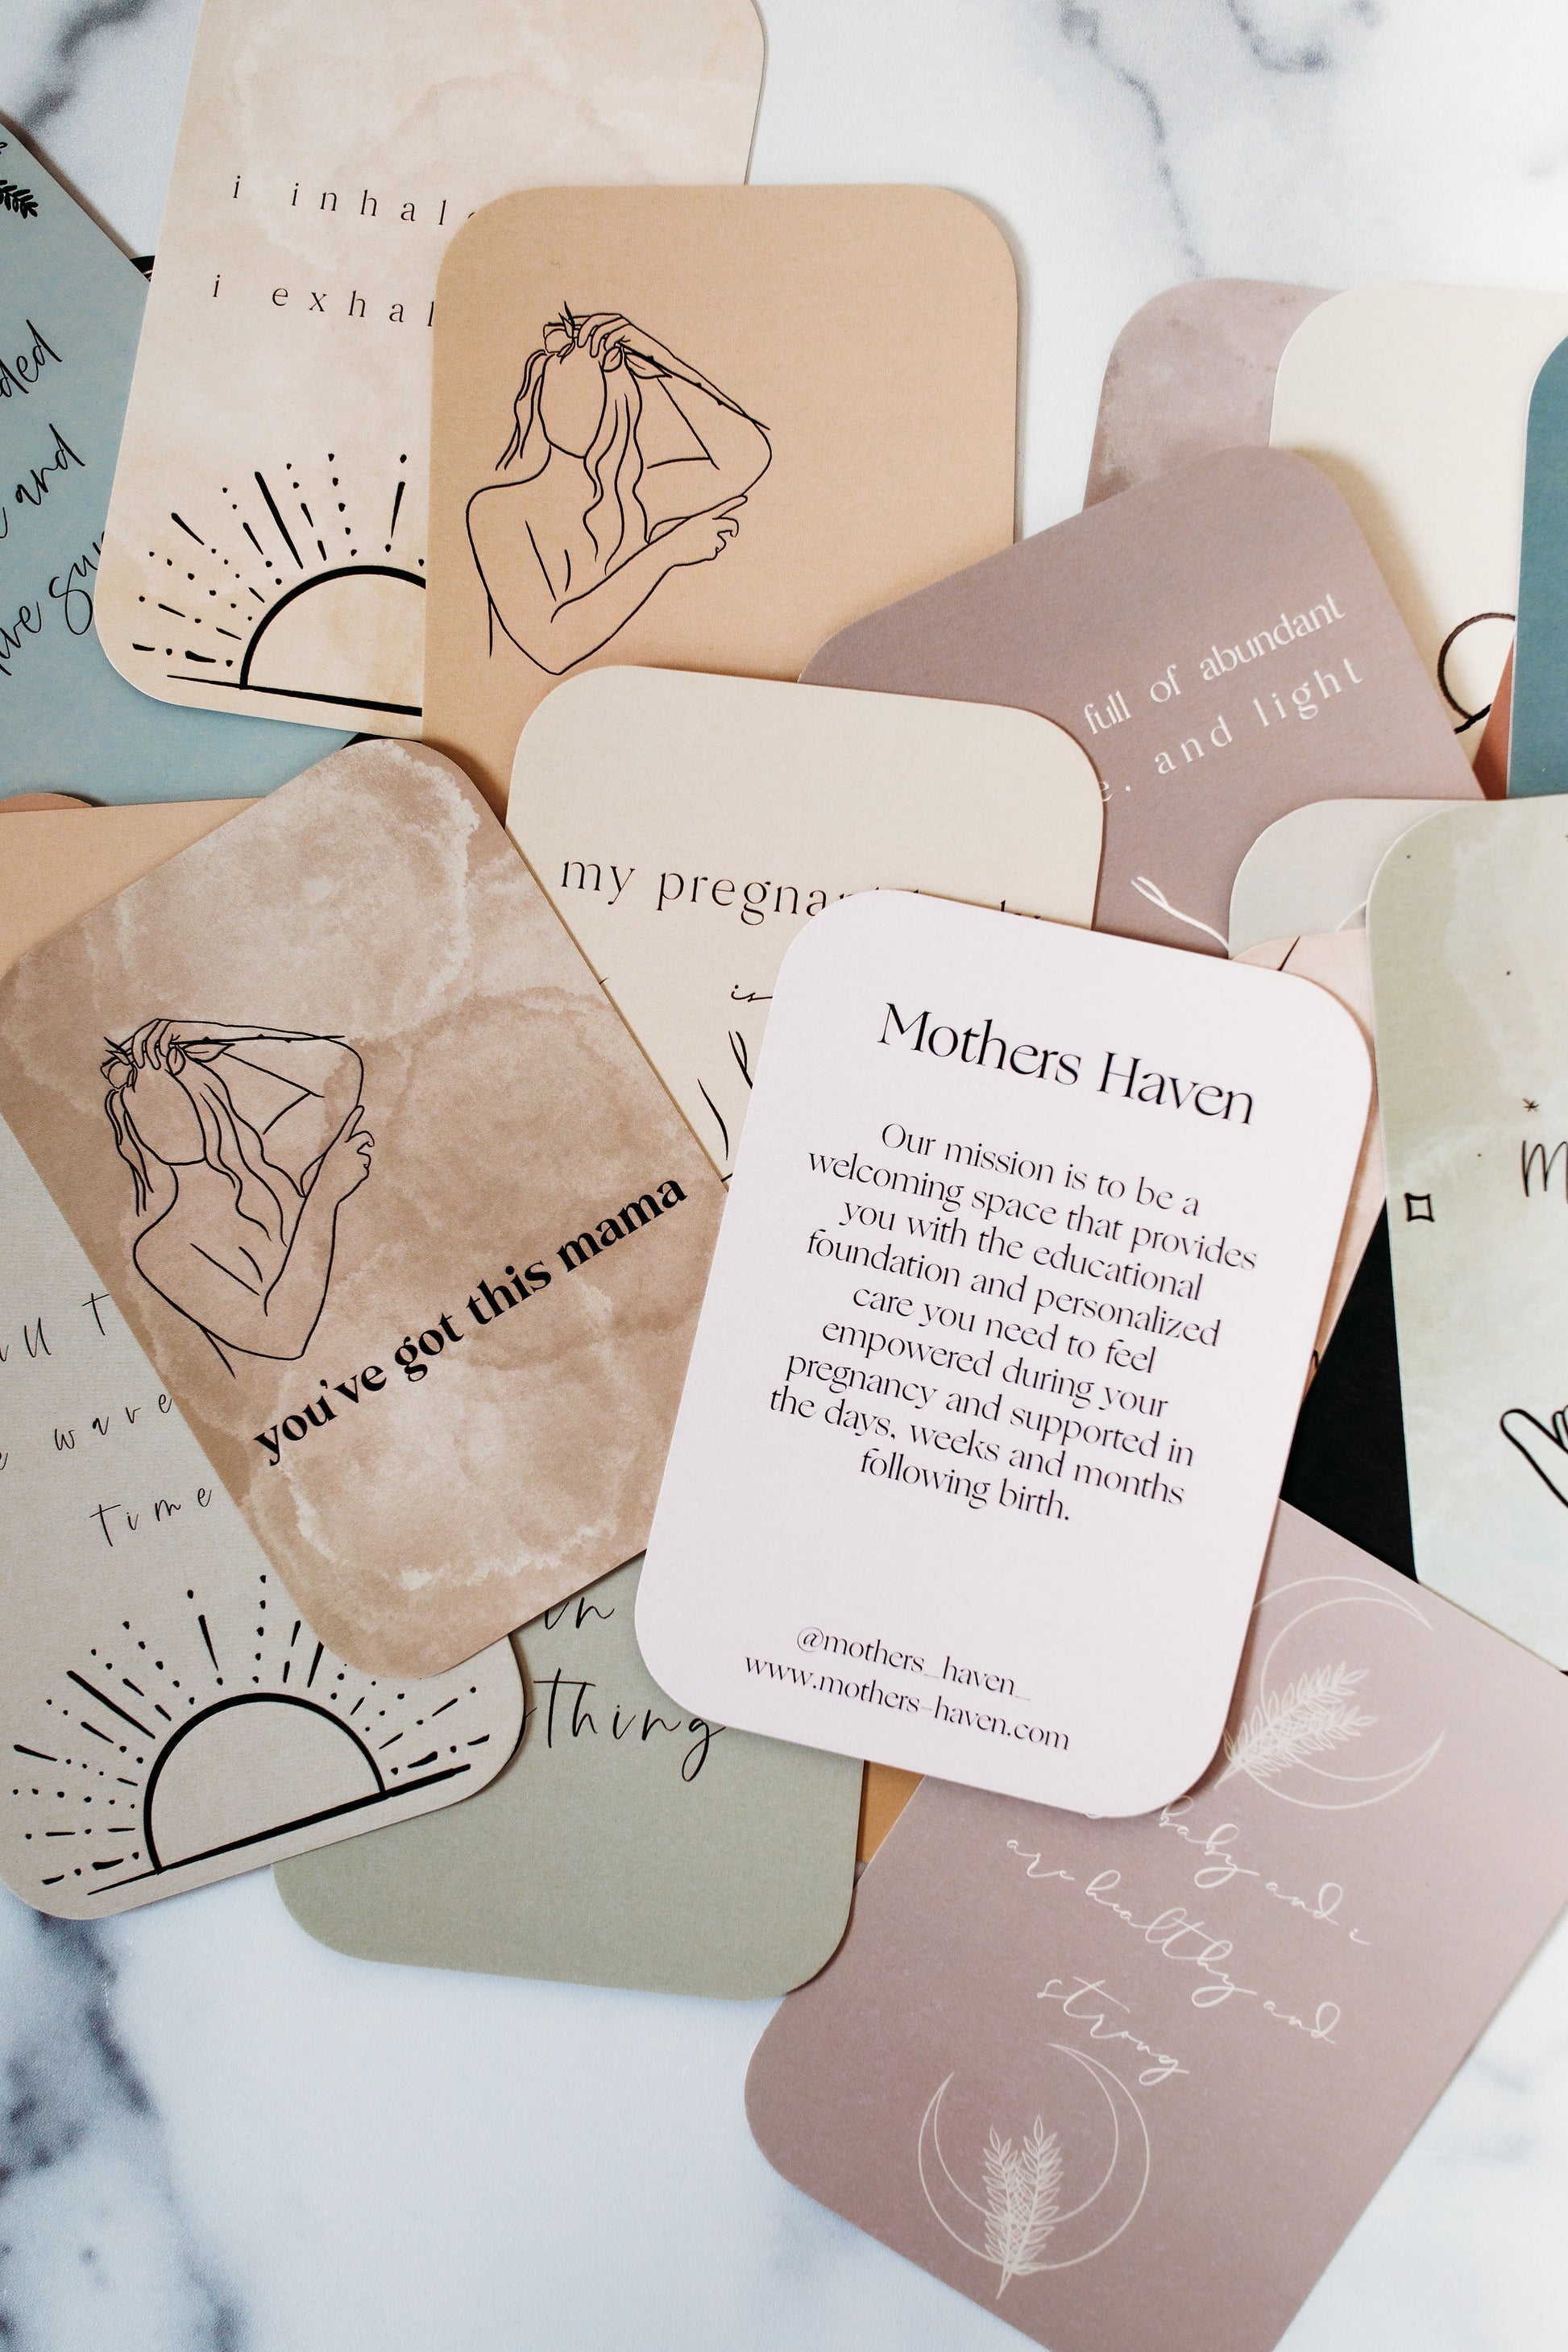 i
i
and
full of abundant
and light
my
is
you've got this mama
wave
time
in
thing
Mothers Haven
Our mission is to be a
welcoming space that provides
you with the educational
foundation and personalized
care you need to feel
empowered during your
pregnancy and supported in
the days, weeks and months
following birth.
@mothers_haven_
www.mothers-haven.com
baby and
are healthy and
strong